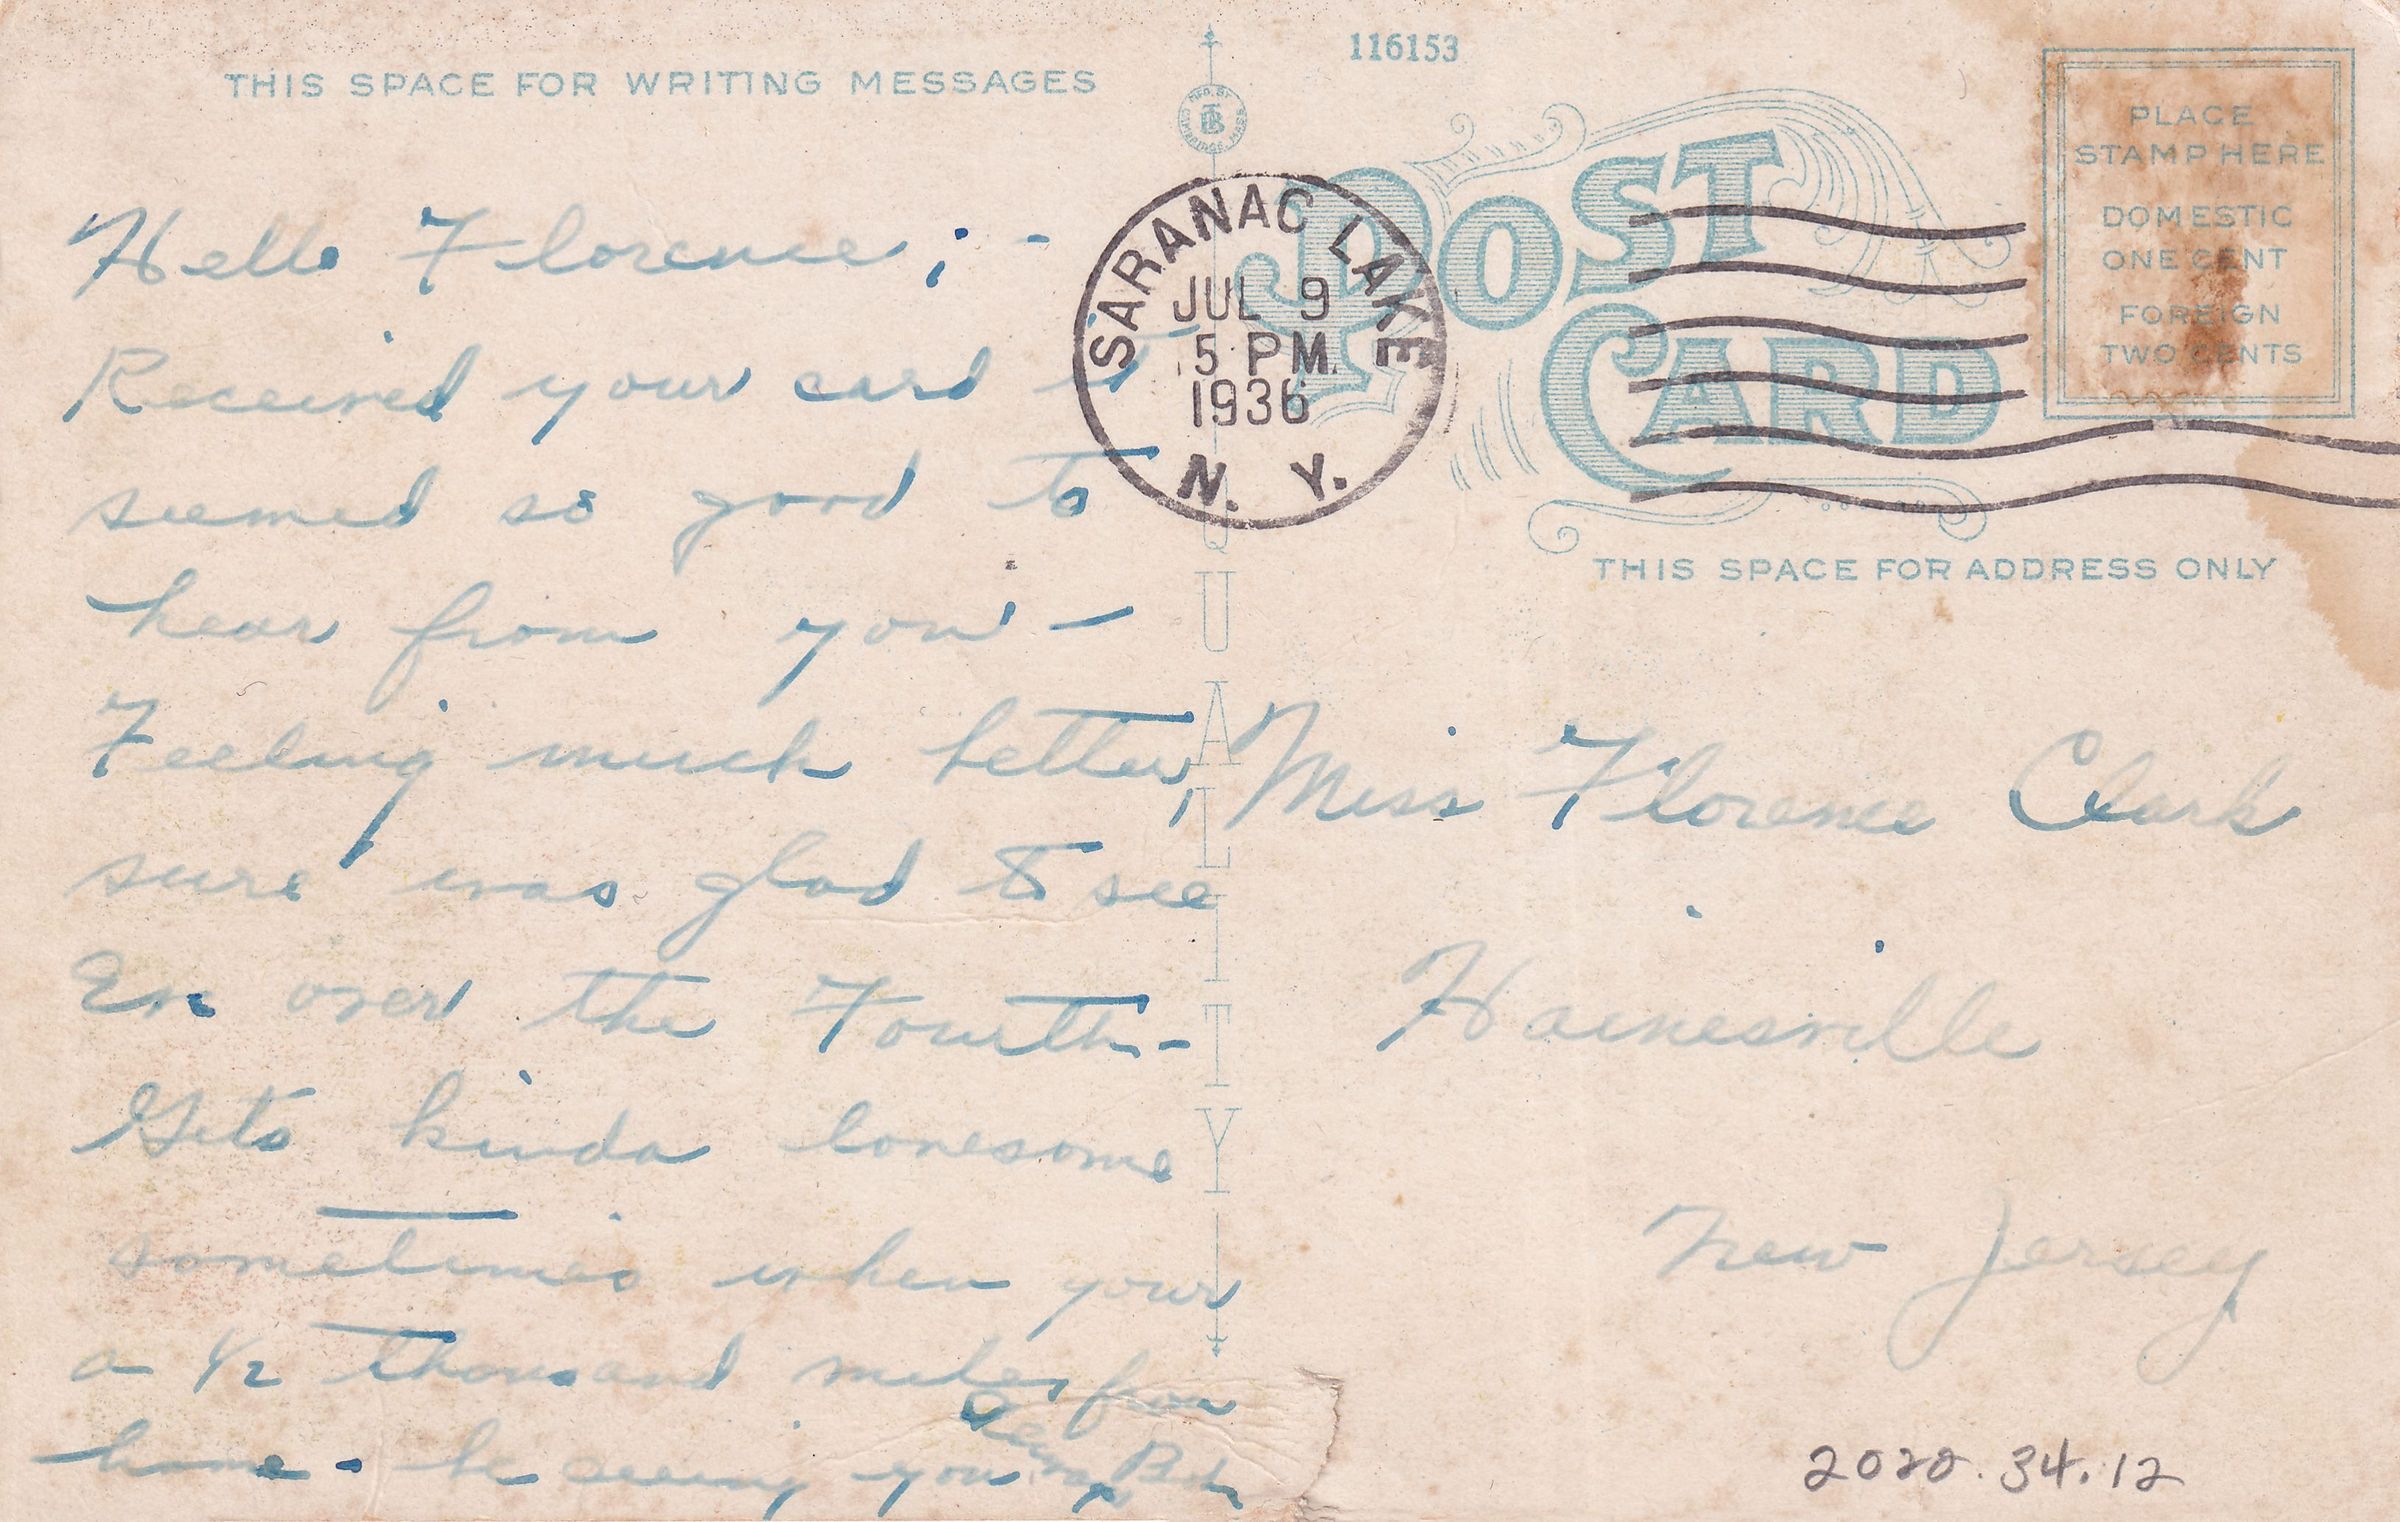 THIS SPACE FOR WRITING MESSAGES
Hello Florence; -
Received your card it
seemed so good to
hear from you -
Feeling much better,
sure was glad to see
Em over the Fourth -
Gets kinda lonesome
sometimes when your
a 1/2 thousand miles from
home - be seeing you
Bob
116153
MFG. BY
CAMBRIDGE, MASS.
QUALITY
POST
CARD
SARANAC LAKE
JUL 9
5 PM
1936
N. Y.
PLACE
STAMP HERE
DOMESTIC
ONE CENT
FOREIGN
TWO CENTS
THIS SPACE FOR ADDRESS ONLY
Miss Florence Clark
Hainesville
New Jersey
2020.34.12